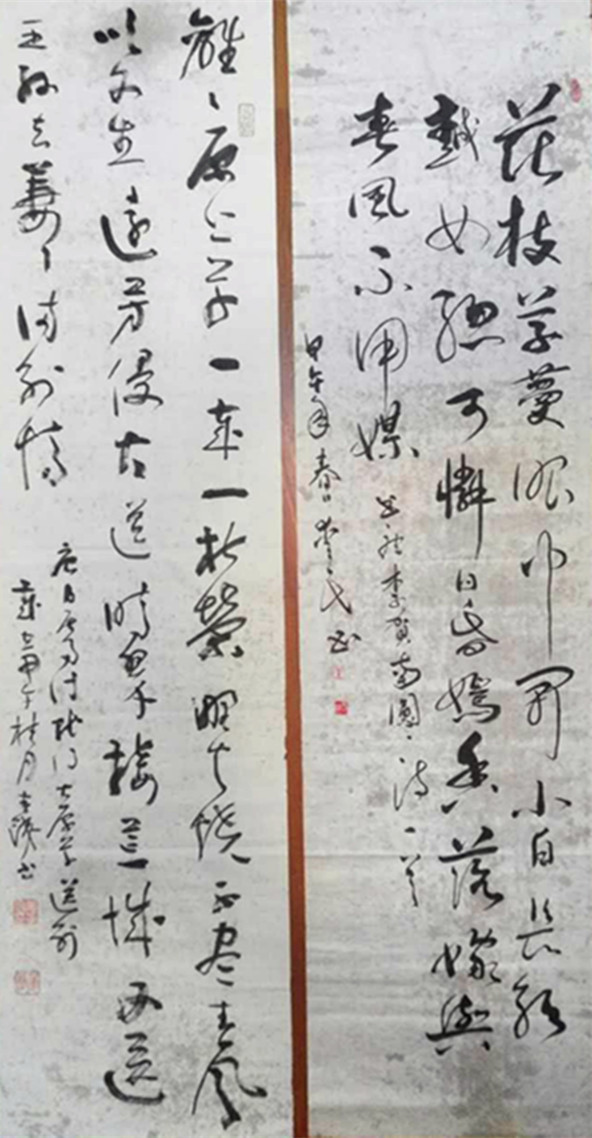 花枝草蔓眼中開小白長紅
越女腮可憐日暮嫣香落嫁與
春風不用媒 李賀南園詩一首
甲午年春日 書
離〻原上草一歲一枯榮野火燒不盡春風
吹又生遠芳侵古道晴翠接荒城又送
王孫去萋〻满別情
唐白居易诗賦得古原草送別
歲在甲午桂月 書